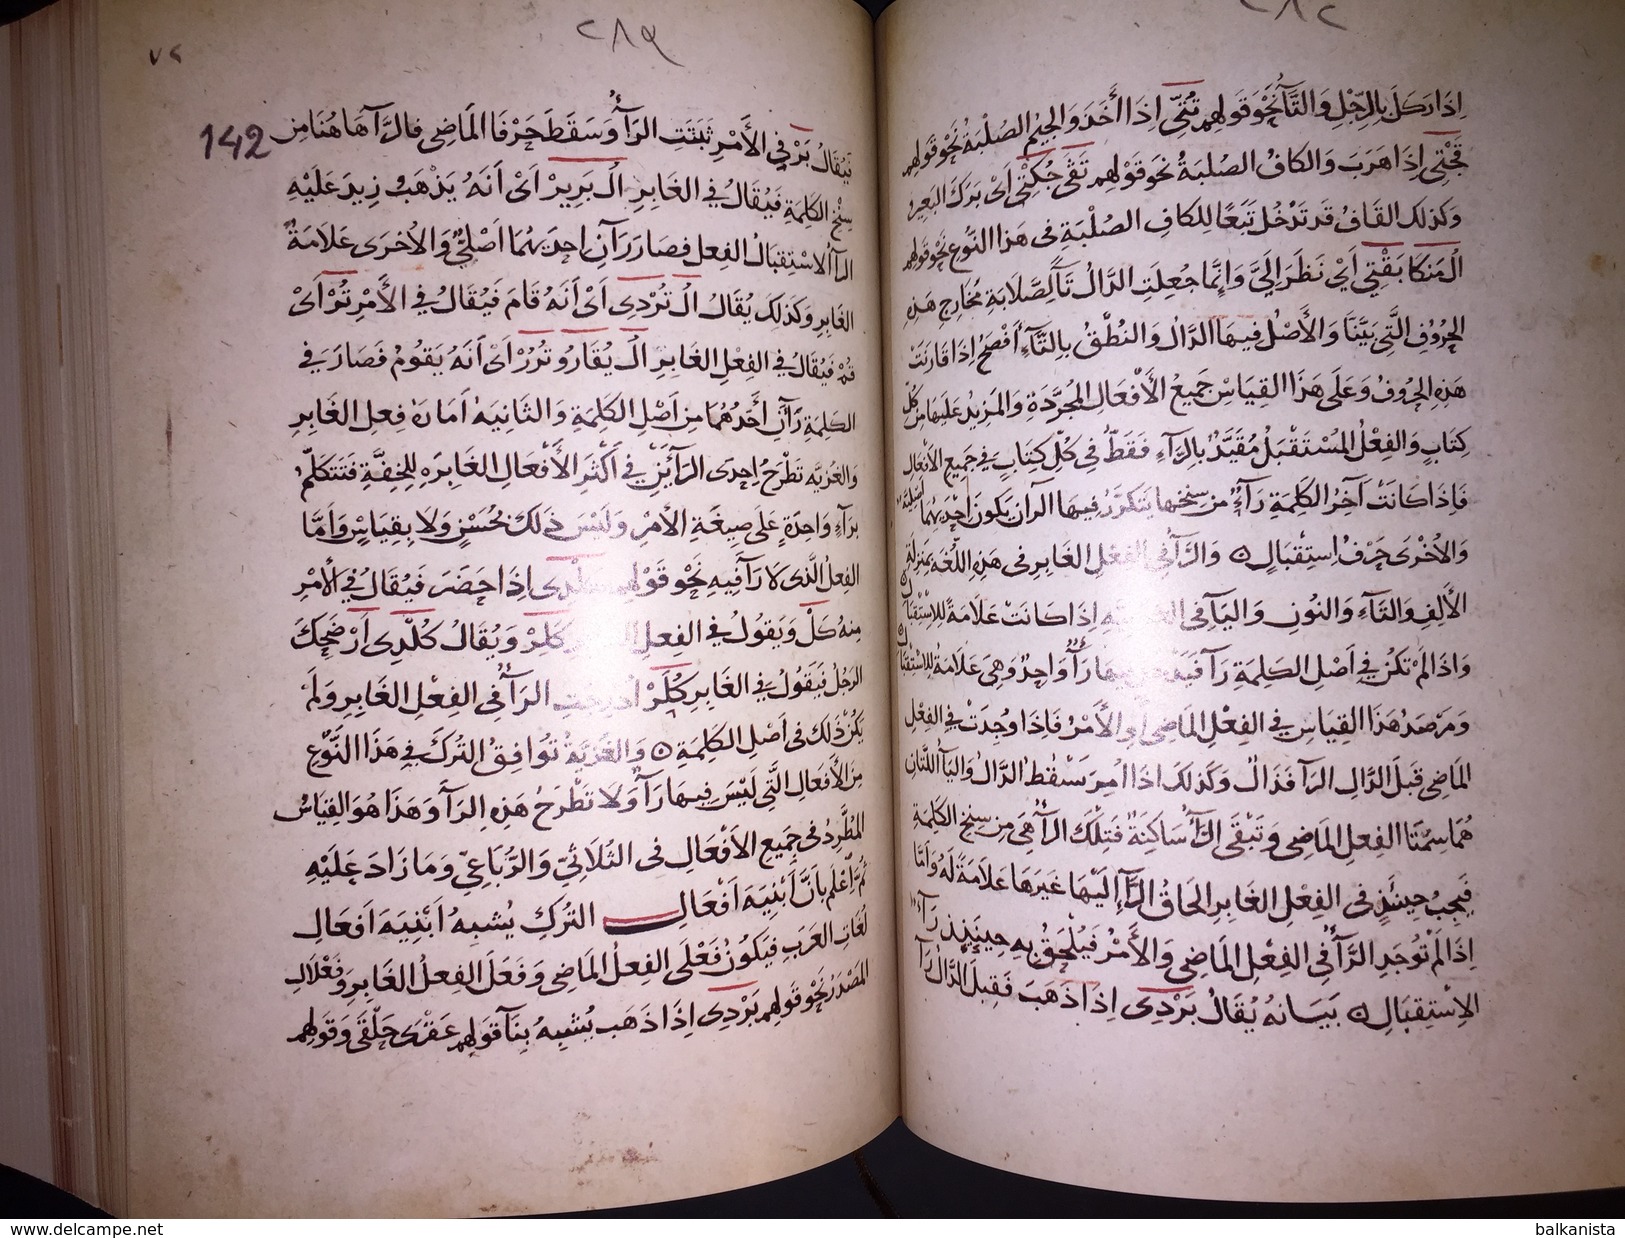 ٢٨٢
اِذَا رَكَلَ بِالرِّجْلِ وَالتَّآءُ نَحْوَ قَوْلِهِمْ تُتْتِى اِذَا أَخَذَ وَالجِيْمِ الصُلْبَةِ نَحْوَ قَوْلِهِمْ
قَجْتِى اِذَا هَرَبَ وَالكَافُ الصُلبَةُ نَحوَ قَوْلِهِمْ تَقَى جُكْتِى اَىْ بَرَكَ البَعِيرُ
وَكَذلِكَ القَافُ قَد تَدْخُلُ تَبَعًا لِلكَافِ الصُلْبَةِ فِى هَذا النَّوْعِ نَحْوَ قَوْلِهِمْ
اُلْ مَنكَا بَقْتِى أَىْ نَظَرَ اِلَيَّ وَاِنَّما جُعِلَتِ الدَّالُ تَآءً لِصَلَابَةِ مَخَارِجِ هَذِهِ
الحُرُوْفِ الَّتِى بَيَّنَّا وَالأَصْلُ فِيهَا الدَّالُ وَالنُطْقُ بِالتَّآءِ أَفْصَحُ اِذَا قَارَنَتْ
هَذِهِ الحُرُوفُ وَعَلَى هَذَا القِيَاسِ جَمِيعُ الأَفْعَالِ المُجَرَّدَةِ وَالمَزِيْدِ عَلَيهَا مِن كُلِّ
كِتَابٍ وَالفِعْلُ المُسْتَقْبَلُ مُقَيَّدٌ بِالرَآءِ فَقَطْ فِى كُلِّ كِتَابٍ فِى جَمِيعِ الأَفْعَالِ
فَاِذَا كَانَتْ آخِرُ الكَلِمَةِ رَآءً مِن سِنخِهَا يَتَكَرَّرُ فِيهَا الرآن يَكونُ اِحْدَيهُمَا اَصْلِيَّة
وَالاُخْرَى حَرْفُ اِستِقْبَالٍ وَالرَّآ فِى الفِعْلِ الغَابِرِ فِى هَذِهِ اللُّغَةِ بِمَنزِلَةِ
الأَلِفِ وَالتَّاءِ وَالنُونِ وَاليَآ فِى اِذَا كَانَتْ عَلَامَةً لِلاِسْتِقْبَال
وَاذَا لَمْ تَكُنْ فِى اَصْلِ الكَلِمَةِ رَآ رَآءٌ وَاحِدٌ وَهِىَ عَلَامَةٌ لِلاِسْتِقْبَال
وَمَرْصَدُ هَذَا القِيَاسِ فِى الفِعْلِ المَاضِى أَوِ الأَمْرُ فَاِذَا وُجِدَتْ فِى الفِعْلِ
المَاضِى قَبلَ الدَّالِ الرَآ فَذَاكَ وَكَذلكَ اذَا اُمِرَ سَقَطَ الدَّالُ وَاليَآ اللَّتَانِ
هُمَا سِمَتَا الفِعلِ المَاضِى وَتَبْقَى الرَآءُ سَاكِنَةً فَتِلْكَ الرَآءُ هِىَ مِنْ سِنخِ الكَلِمَةِ
فَيَجِبُ حِينَئِذٍ فِى الفِعْلِ الغَابِرِ اِلحَاقُ الرَّآءِ اِلَيْهَا غَيرَهَا عَلَامَةً لَهُ وَاَمَّا
اِذَا لَمْ تُوجَدِ الرَّآءُ فِى الفِعْلِ المَاضِى وَالأَمْرُ فَيُلْحَقُ بِهِ حِينَئِذٍ رَآءٌ
الاِسْتِقبَالِ بَيَانُهُ يُقَالُ بَرْدِى اِذَا ذَهَبَ فَقَبلَ الدَّالُ رَآ
٢٨٥
٧٢
142
فَيُقَالُ بَرْ فِى الأَمْرِ ثَبَتَتِ الرَآءُ وَسَقَطَ حَرْفَا المَاضِى فالرَّآ هَاهُنَا مِن
سِنْخِ الكَلِمَةِ فَيُقَالُ فِى الغَابِرِ اُلْ بَرِيرْ اَىْ اَنَّهُ يَذْهَبُ زِيدَ عَلَيْهِ
الرَآ لاسْتِقبَالِ الفِعلِ فصَارَ رَآنِ اِحْدَيهُمَا اَصْلِىٌّ وَالاُخْرَى عَلَامَةُ
الغَابِرِ وَكَذلِكَ يُقَالُ اُلْ تُرْدِى اَىْ اَنَّهُ قَامَ فَيُقَالُ فِى الأَمْرِ تُرْ اَىْ
قُمْ فَيُقَالُ فِى الفِعْلِ الغَابِرِ اُلْ يُقَارُو تُرُرْ اَىْ اَنَّهُ يَقُومُ فَصَارَ فِى
الكَلِمَةِ رَآنِ أَحَدُهُمَا مِن اَصْلِ الكَلِمَةِ وَالثَانِيَة اَمَارَة فِعلِ الغَابِرِ
وَالغُزِيَّه تَطْرَحُ اِحْدَى الرَآئَيْنِ فِى اَكْثَرِ الأَفْعَالِ الغَابِرَهِ لِلخِفَّةِ فَتَتَكَلَّمُ
بِرَآءٍ وَاحِدَةٍ عَلَى صِيغَةِ الأمْرِ وَلَيْسَ ذَلكَ بحُسْنٍ وَلَا بِقِيَاسٍ وَاَمَّا
الفِعلُ الَّذى لَا رَآ فِيهِ نَحْوَ قَوْلِهِمْ كَلْدِى اِذَا حَضَرَ فَيُقَالُ فِى الأَمْرِ
مِنهُ كَلْ وَيَقُولُ فِى الفِعلِ كَلِرْ وَيُقَالُ كُلْدِى اَىْ ضَحِكَ
الرَجُلُ فَيَقُولُ فِى الغَابِرِ كُلَرْ الرَآءُ فِى الفِعْلِ الغَابِرِ وَلَمْ
يَكُنْ ذَلكَ فى اَصْلِ الكَلِمَةِ وَالغُزِيَّةُ تُوَافِقُ التُركَ فِى هَذَا النَّوْعِ
مِنَ الأَفْعَالِ الَّتِى لَيْسَ فِيهَا رَآءٌ وَلا تَطْرَحُ هَذِهِ الرَآ وَهَذَا هُوَ القِيَاسُ
المُطَّرِدُ فى جَمِيعِ الاَفْعَالِ فى الثُلَاثِيِّ وَالرُّبَاعِيِّ وَمَا زَادَ عَلَيْهِ
ثُمَّ اعْلَم بِاَنَّ اَبْنِيَة اَفْعَالِ التُركِ يُشبِهُ اَبْنِيَة اَفعَالِ
لُغَاتِ العَرَبِ فيَكُونُ فَعْلَى الفِعلُ المَاضِى وَفَعَلَ الفِعلُ الغَابِر وَفَعْلَال
المَصْدَرُ نَحْوَ قَولِهِمْ بَرْدِى اِذَا ذَهَب يُشبِهُ بِنَآ قَوْلِهِمْ عَقْرَى حَلْقَى وَقَولِهِمْ
balkanista